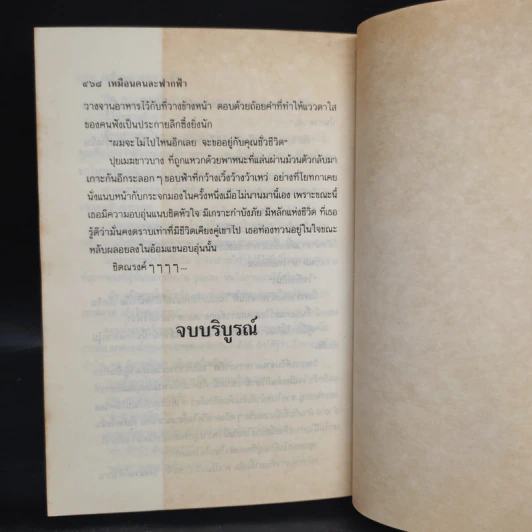 ๔๖๘ เหมือนคนละฟากฟ้า
วางจานอาหารไว้กับที่วางข้างหน้า ตอบด้วยถ้อยคำที่ทำให้แววตาใส
ของคนฟังเป็นประกายลึกซึ้งยิ่งนัก
"ผมจะไม่ไปไหนอีกเลย จะขออยู่กับคุณชั่วชีวิต"
ปุยเมฆขาวบาง ที่ถูกแหวกด้วยพาหนะที่แล่นผ่านม้วนตัวกลับมา
เกาะกันอีกระลอกๆ ขอบฟ้าที่กว้างเวิ้งว้างว้าเหว่ อย่างที่โยทกาเคย
นั่งแนบหน้ากับกระจกมองในครั้งหนึ่งเมื่อไม่นานมานี้เอง เพราะขณะนี้
เธอมีความอบอุ่นแนบชิดหัวใจ มีเกราะกำบังภัย มีหลักแห่งชีวิต ที่เธอ
รู้ดีว่ามั่นคงตราบเท่าที่มีชีวิตเคียงคู่เขาไป เธอท่องทวนอยู่ในใจขณะ
หลับผล็อยลงในอ้อมแขนอบอุ่นนั้น
ชิดณรงค์ ๆ ๆ ๆ ๆ...
จบบริบูรณ์